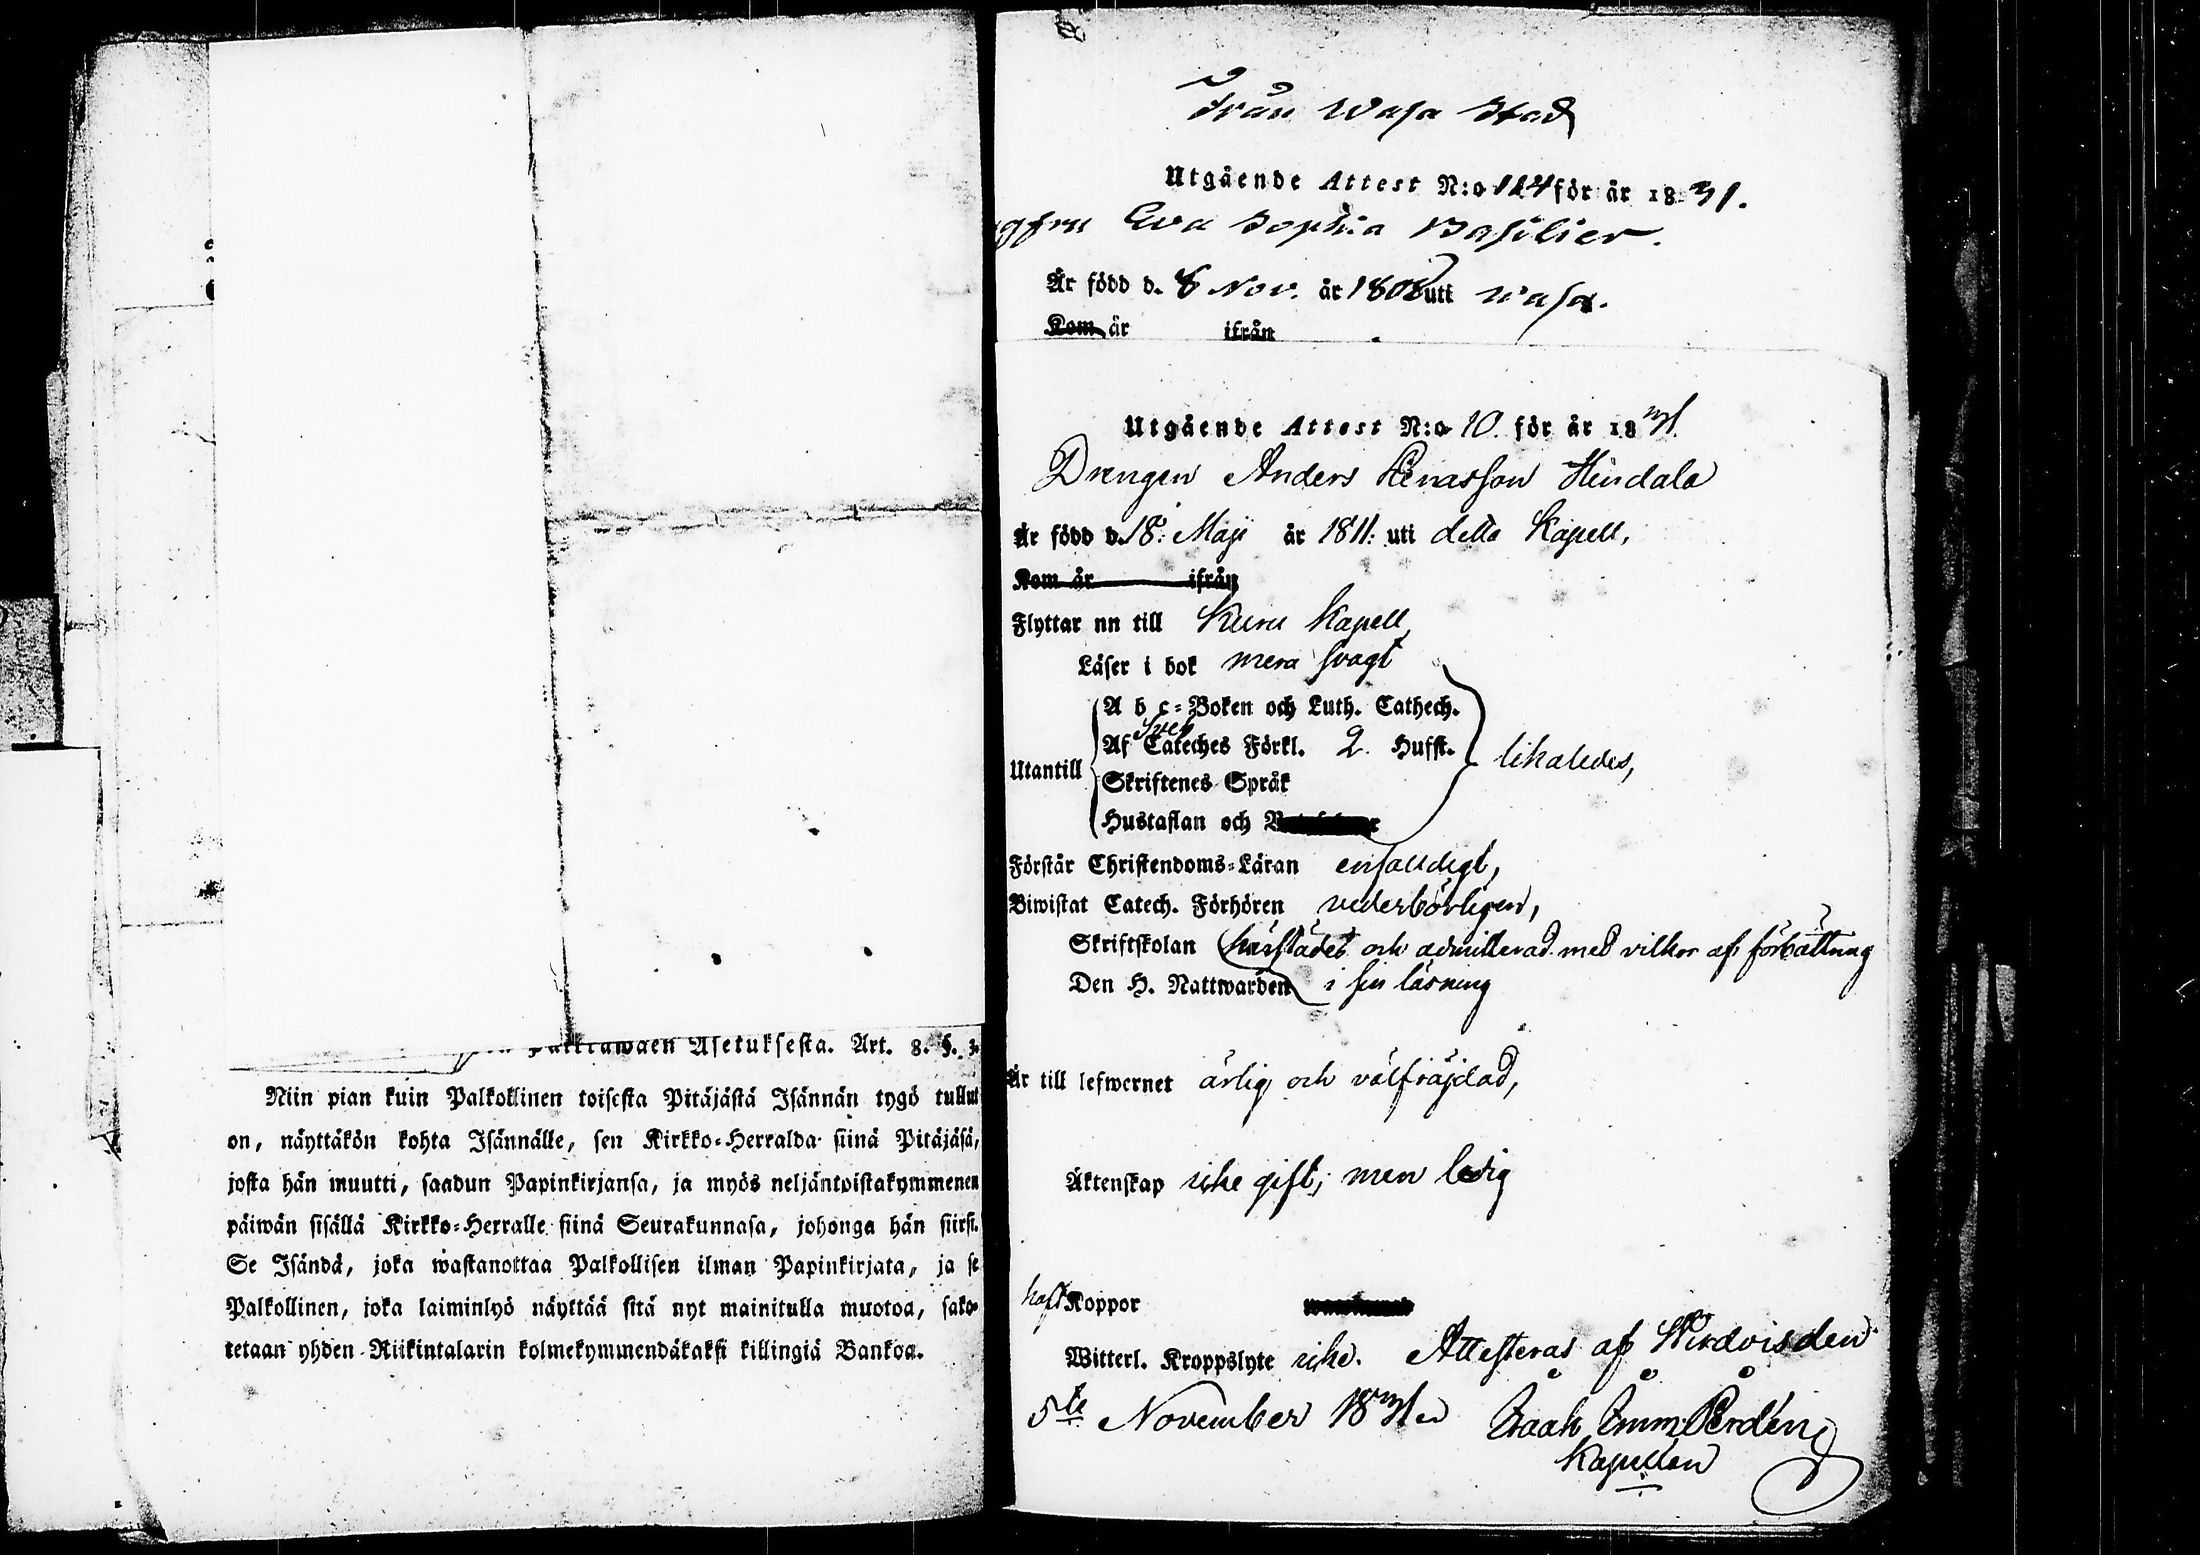 Asetuksesta. Art. 8. §. 3.
Niin pian kuin Palkollinen toisesta Pitäjästä Isännän tygö tullut
on, näyttäkön kohta Isännälle, sen Kirkko-Herralda siinä Pitäjäsä,
josta hän muutti, saadun Papinkirjansa, ja myös neljäntoistakymmenen
päiwän sisällä Kirkko-Herralle siinä Seurakunnasa, johonga hän siirst.
Se Isändä, joka wastanottaa Palkollisen ilman Papinkirjata, ja se
Palkollinen, joka laiminlyö näyttää sitä nyt mainitulla muotoa, sako-
tetaan yhden Riikintalarin kolmekymmendäkaksi killingiä Bankoa.
Från Wasa Stad
Utgående Attest N:o 124 för år 1831.
gfru Eva Sophia Basilier.
Är född d. 8 Nov. år 1808 uti Wasa.
Kom år ifrån
Utgående Attest N:o 10. för år 1831.
Drengen Anders Hindala
Är född d. 18: Maji år 1811: uti detta Kapell,
Kom år ifrån
Flyttar nu till Kuru Kapell,
Läser i bok mera svagt
A b c-Boken och Luth. Cathech.
Sveb
Af Cateches Förkl. 2. Hufst.
Utantill likaledes,
Skriftenes Språk
Hustaflan och
Förstår Christendoms-Läran enfalldigt,
Biwistat Catech. Förhören vederbörligen,
Skriftskolan härstädes och admitterad med vilkor af förbättring
Den H. Nattwarden i sin läsning
Är till lefwernet ärlig och välfräjdad,
Äktenskap icke gift; men ledig
haft Koppor
Witterl. Kroppslyte icke. Attesteras af Wirdois den
5te November 1831 Isaak Imm.
Kapellan